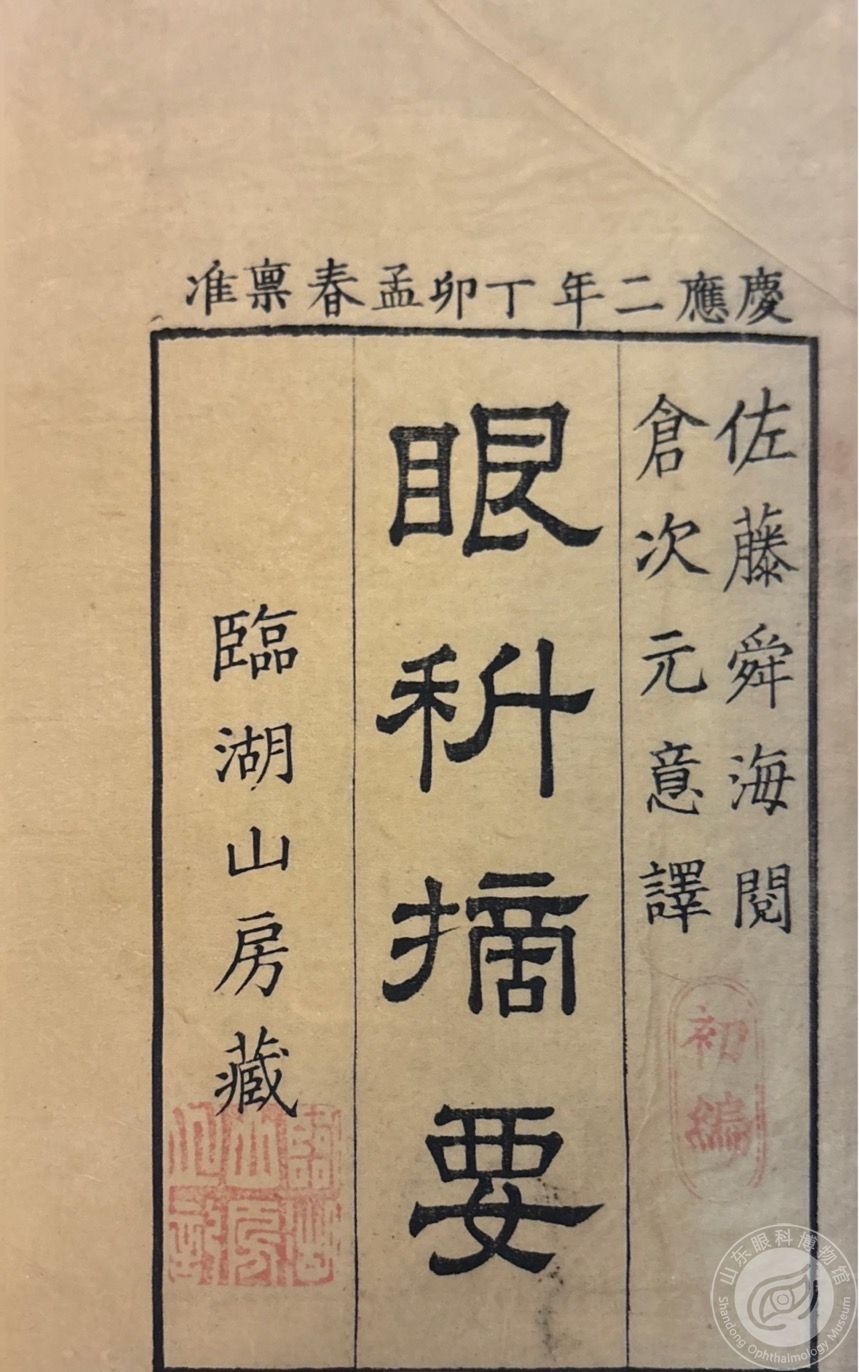 慶應二年丁卯孟春稟准
佐藤舜海閱
倉次元意譯
初編
眼科摘要
臨湖山房藏
山东眼科博物馆
Shandong Ophthalmology Museum